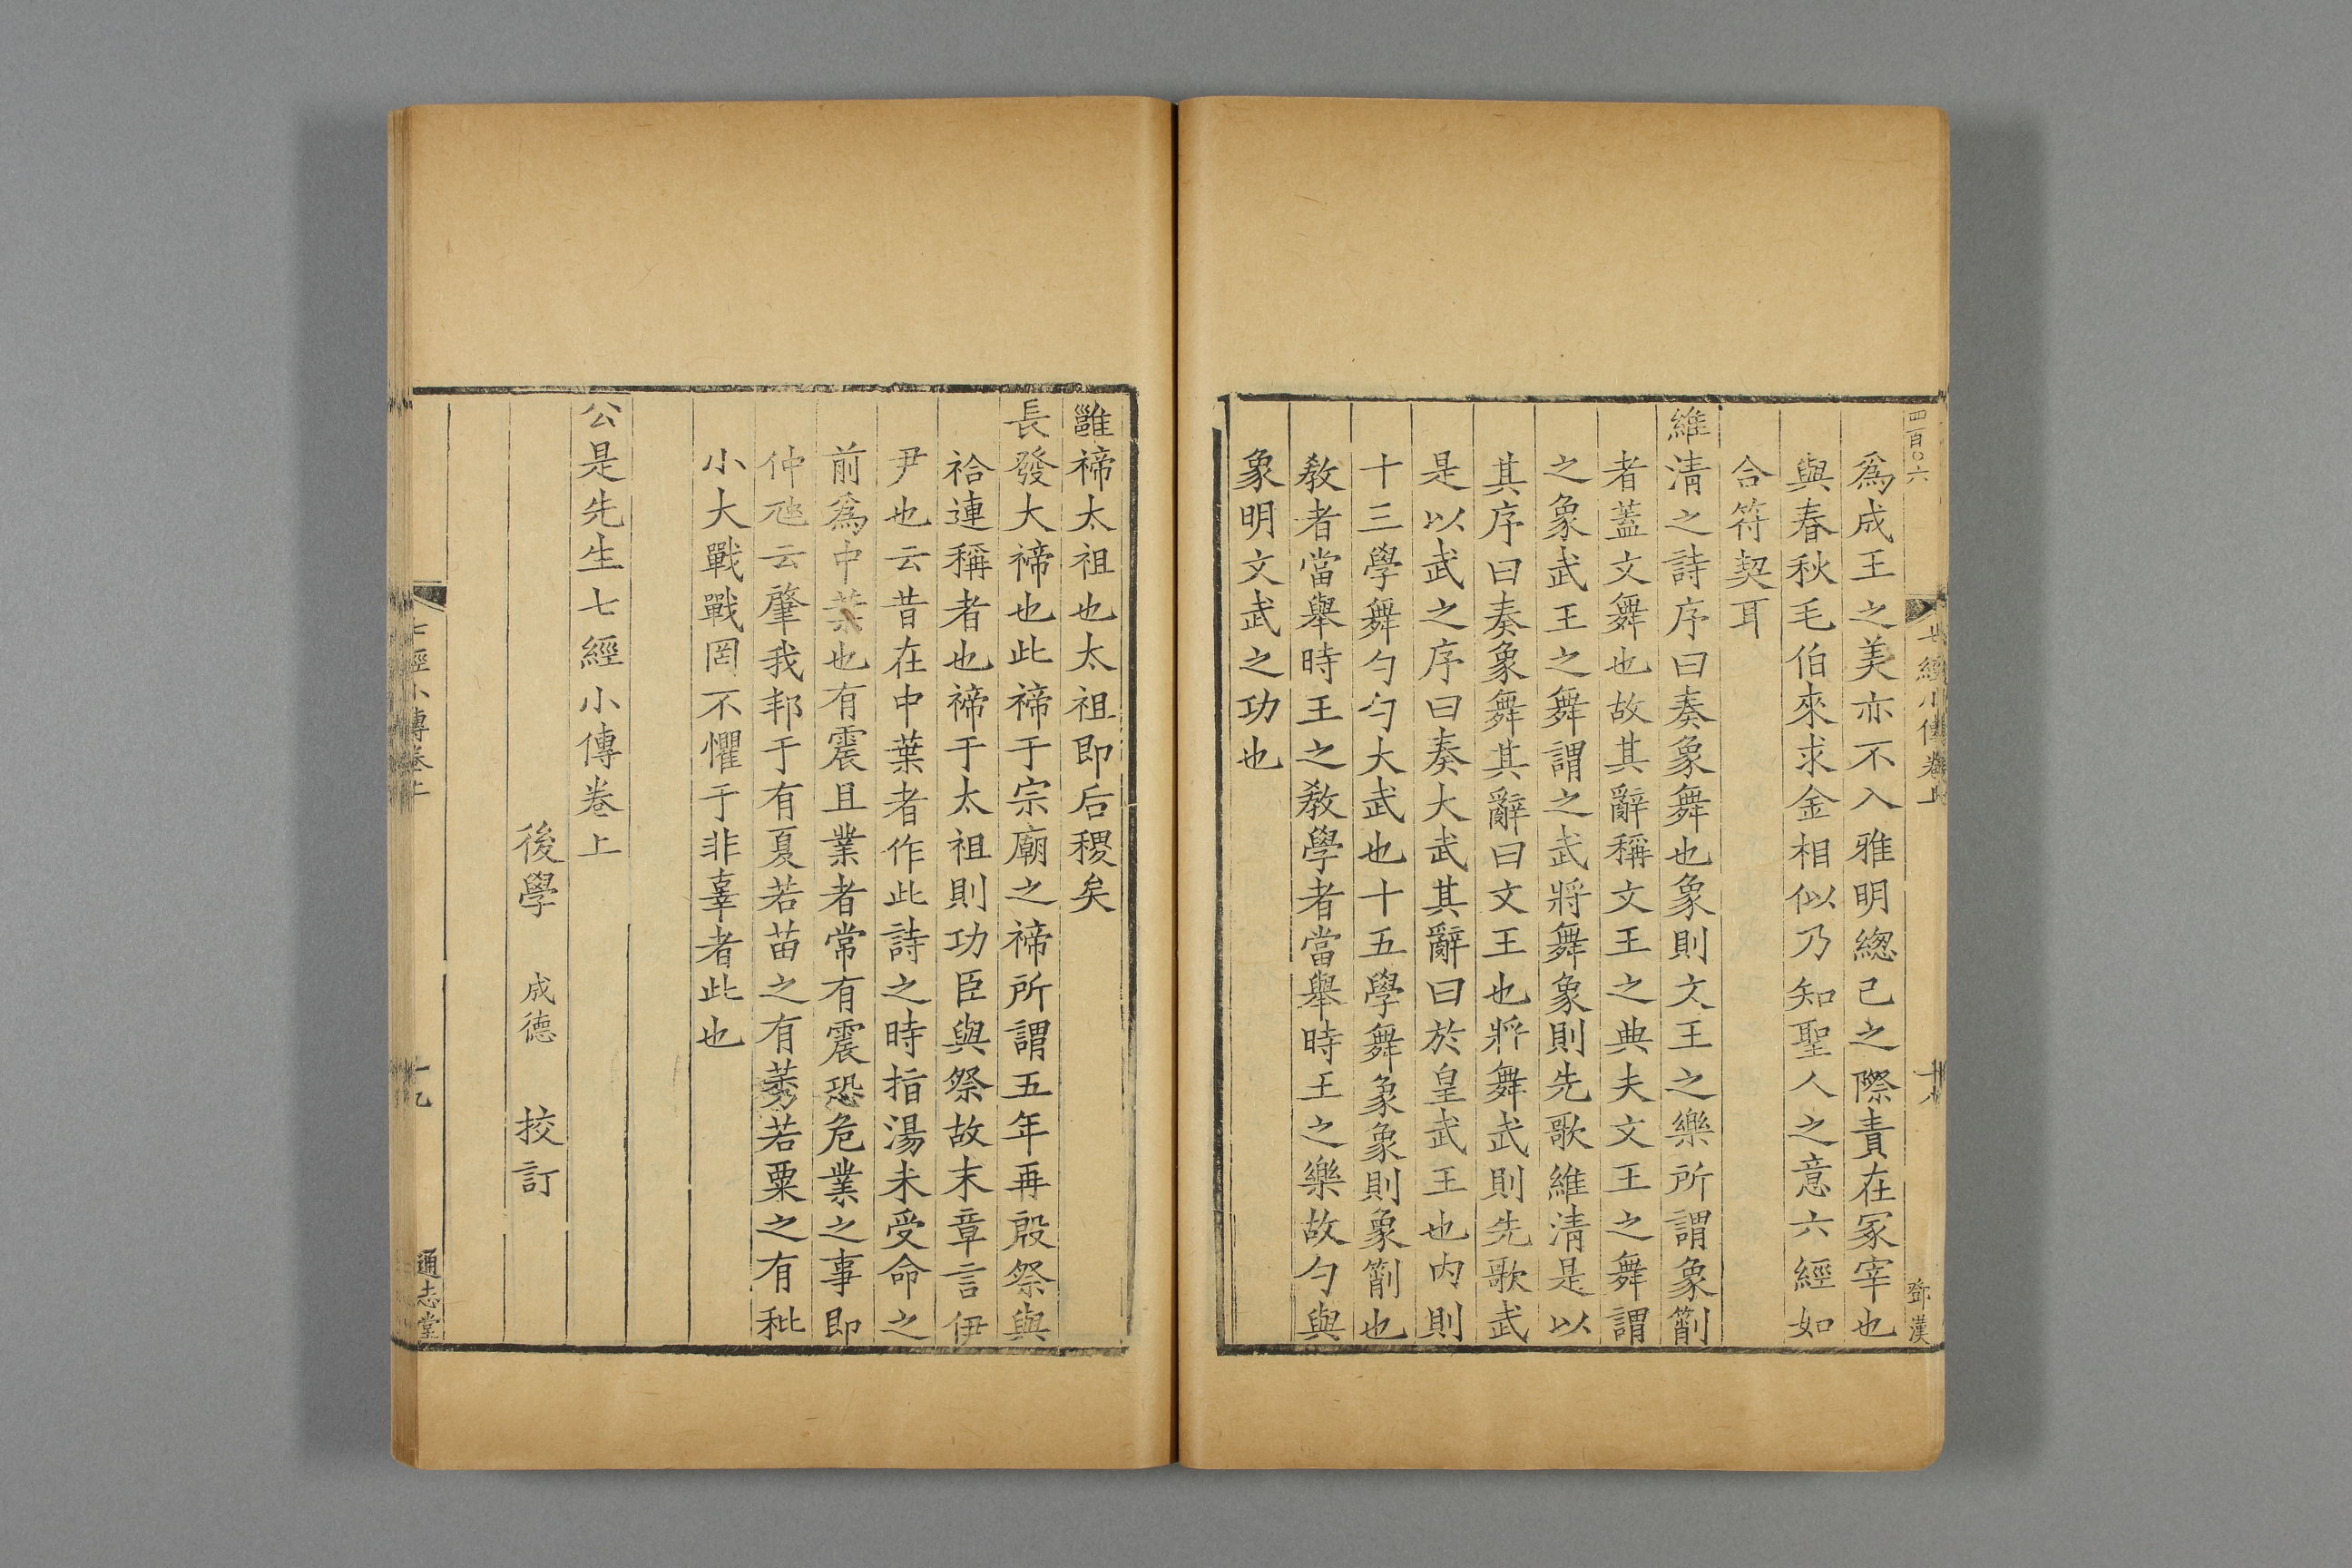 四百〇六
七經小傳卷上
鄧漢
爲成王之美亦不入雅明緫己之際責在冢宰也
與春秋毛伯來求金相似乃知聖人之意六經如
合符契耳
維清之詩序曰奏象舞也象則文王之樂所謂象箾
者蓋文舞也故其辭稱文王之典夫文王之舞謂
之象武王之舞謂之武將舞象則先歌維清是以
其序曰奏象舞其辭曰文王也將舞武則先歌武
是以武之序曰奏大武其辭曰於皇武王也內則
十三學舞勺勺大武也十五學舞象象則象箾也
敎者當舉時王之敎學者當舉時王之樂故勺與
象明文武之功也
雝禘太祖也太祖即后稷矣
長發大禘也此禘于宗廟之禘所謂五年再殷祭與
祫連稱者也禘于太祖則功臣與祭故末章言伊
尹也云昔在中葉者作此詩之時指湯未受命之
前爲中葉也有震且業者常有震恐危業之事即
仲虺云肇我邦于有夏若苗之有莠若粟之有秕
小大戰戰罔不懼于非辜者此也
公是先生七經小傳卷上
後學 成德 挍訂
七經小傳卷上
十九
通志堂